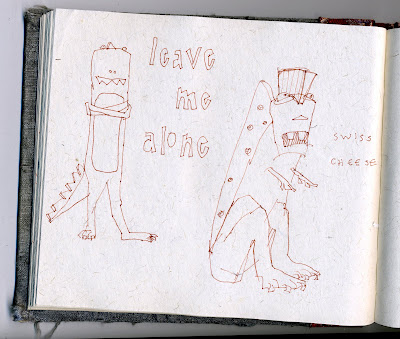 leave
me
alone
SWISS
CHEESE